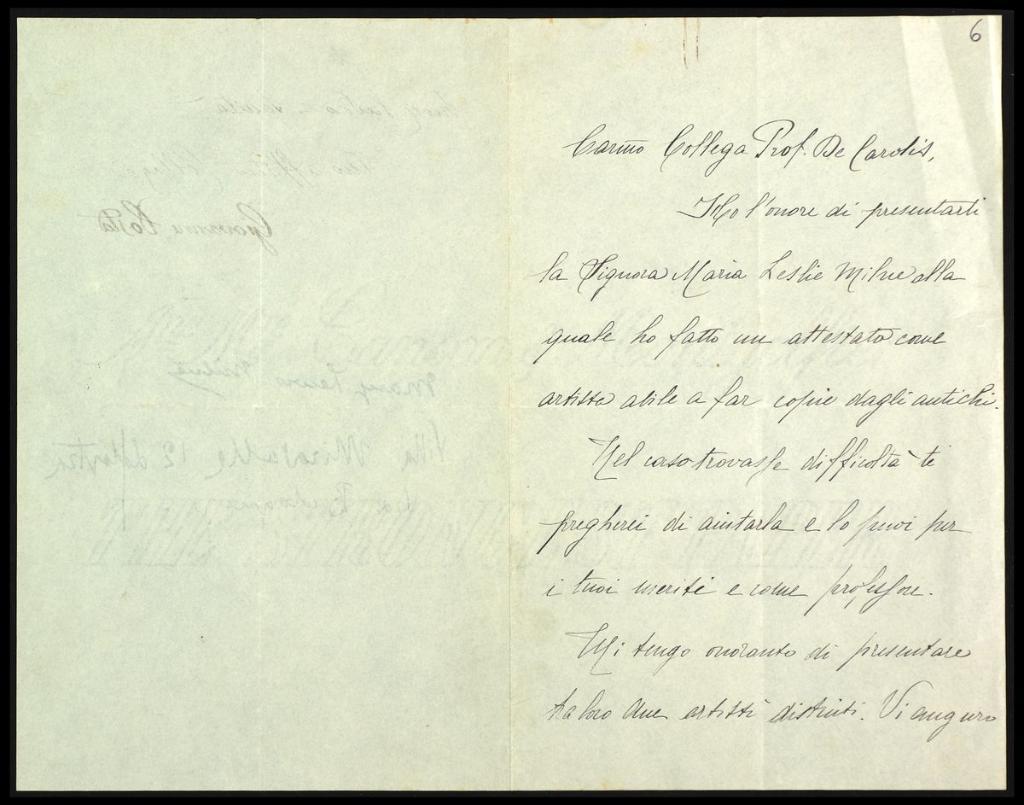 6
Carmo Collega Prof. De Carolis,
Ho l'onore di presentarti
la Signora Maria Leslie Milne alla
quale ho fatto un attestato come
artista abile a far copie dagli antichi.
Nel caso trovasse difficoltà ti
pregherei di aiutarla e lo puoi per
i tuoi meriti e come professore.
Mi tengo onoranto di presentare
tra loro due artisti distinti. Vi auguro
Giovanni Costa
Villa Miravalle 12